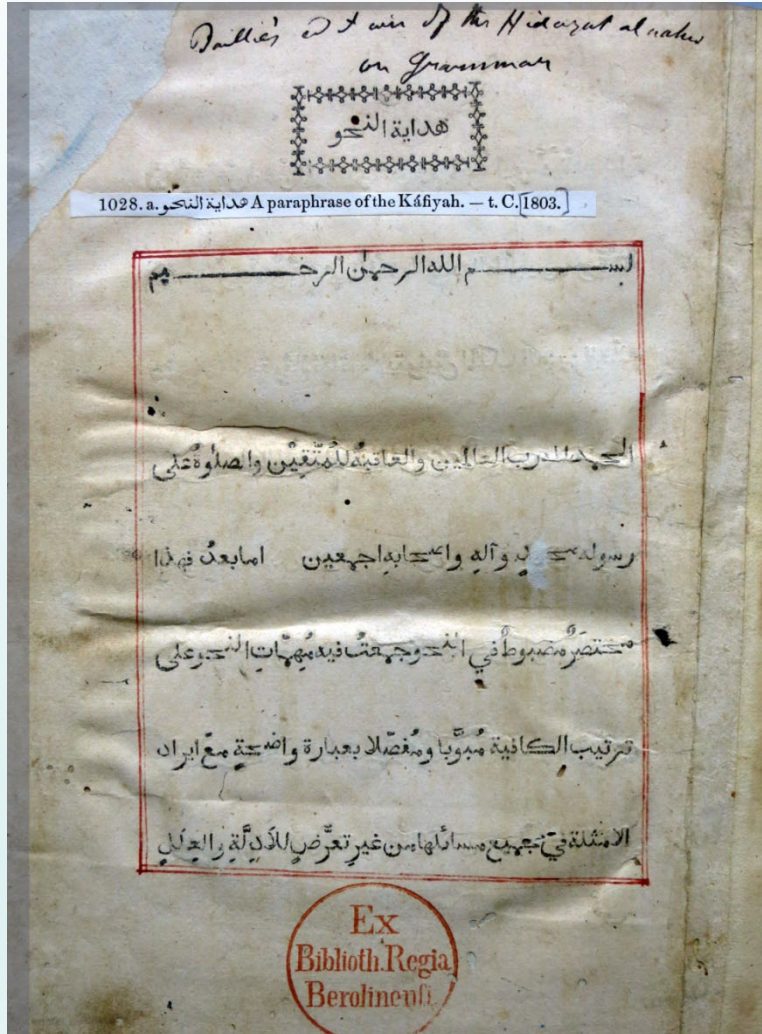 Baillie's edition of the Hidayat al nahw
on Grammar
هداية النحو
1028. a. هداية النحو A paraphrase of the Káfiyah. — t. C. [1803.]
بسم الله الرحمن الرحيم
الحمد لله رب العالمين والعاقبةُ للمُتَّقِيْن والصلٰوةُ على
رسوله محمدٍ وآلهِ واصحابهِ اجمعين امابعدُ فهذا
مختصَرٌ مضبوطٌ في النحو جمعتُ فيه مُهِمَّاتِ النحو على
ترتيب الكافية مُبوَّبا ومُفصّلا بعبارة واضحةٍ معَ ايراد
الامثلة في جميع مسائلها من غيرِ تعرَّضٍ للأدِلَّةِ والعِلَلِ
Ex
Biblioth. Regia
Berolinensi.